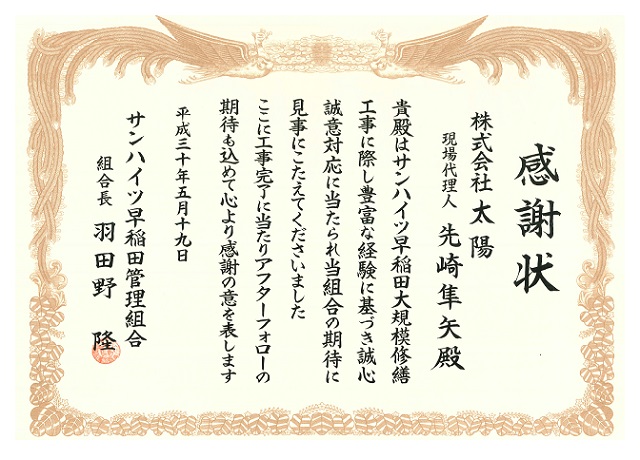 感謝状
株式会社 太陽
現場代理人 先崎隼矢殿
貴殿はサンハイツ早稲田大規模修繕
工事に際し豊富な経験に基づき誠心
誠意対応に当たられ当組合の期待に
見事にこたえてくださいました
ここに工事完了に当たりアフターフォローの
期待も込めて心より感謝の意を表します
平成三十年五月十九日
サンハイツ早稲田管理組合
組合長 羽田野 隆